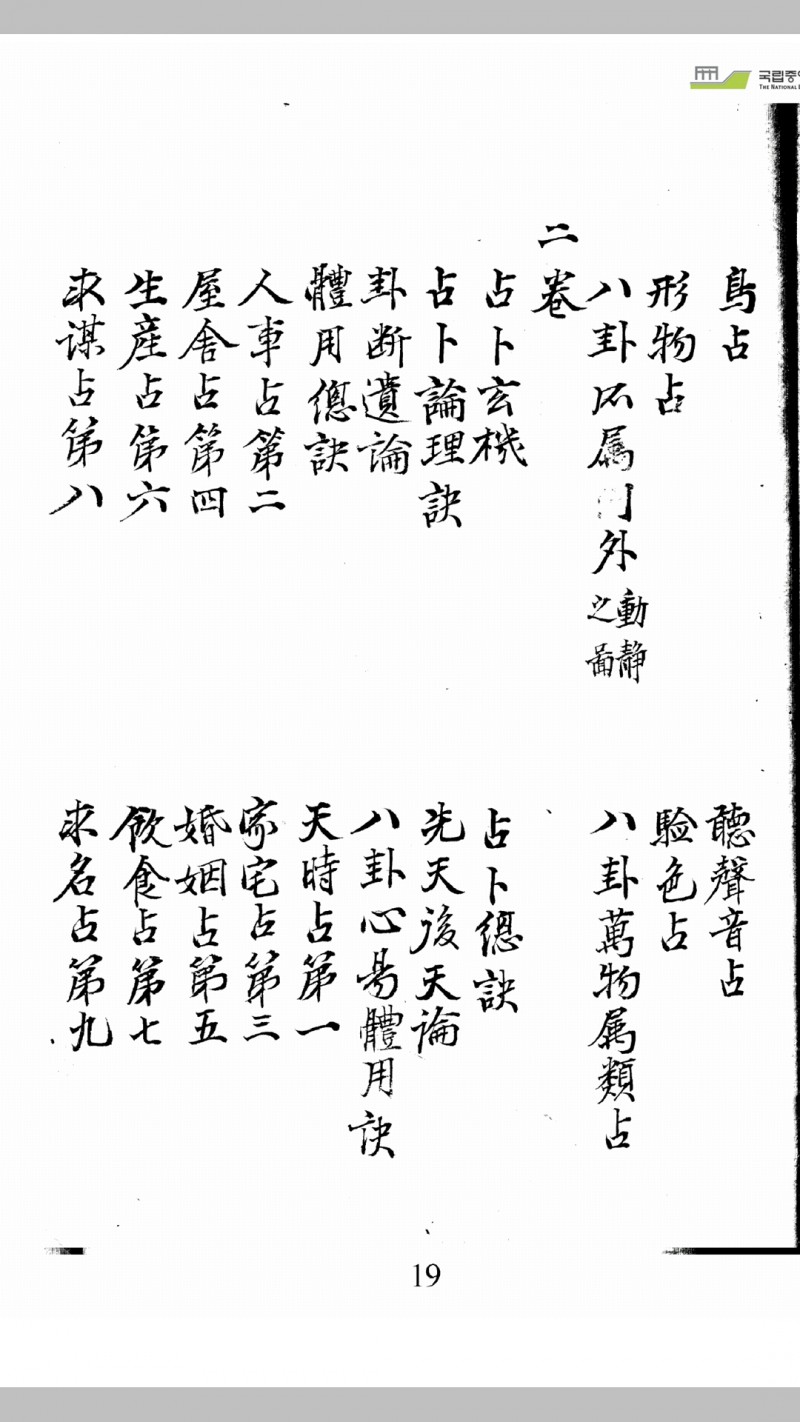 국립중
THE NATIONAL
鳥占
聽聲音占
形物占
驗色占
八卦所属 外動靜之啚
八卦萬物属類占
二卷
占卜玄機
占卜總訣
占卜論理訣
先天後天論
卦断遺論
八卦心易體用訣
體用總訣
天時占第一
人事占第二
家宅占第三
屋舍占第四
婚姻占第五
生産占第六
飲食占第七
求謀占第八
求名占第九
19